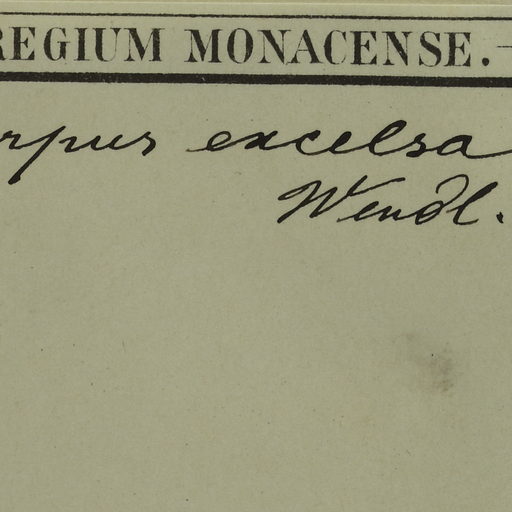 REGIUM MONACENSE.
rpus excelsa
Wendl.